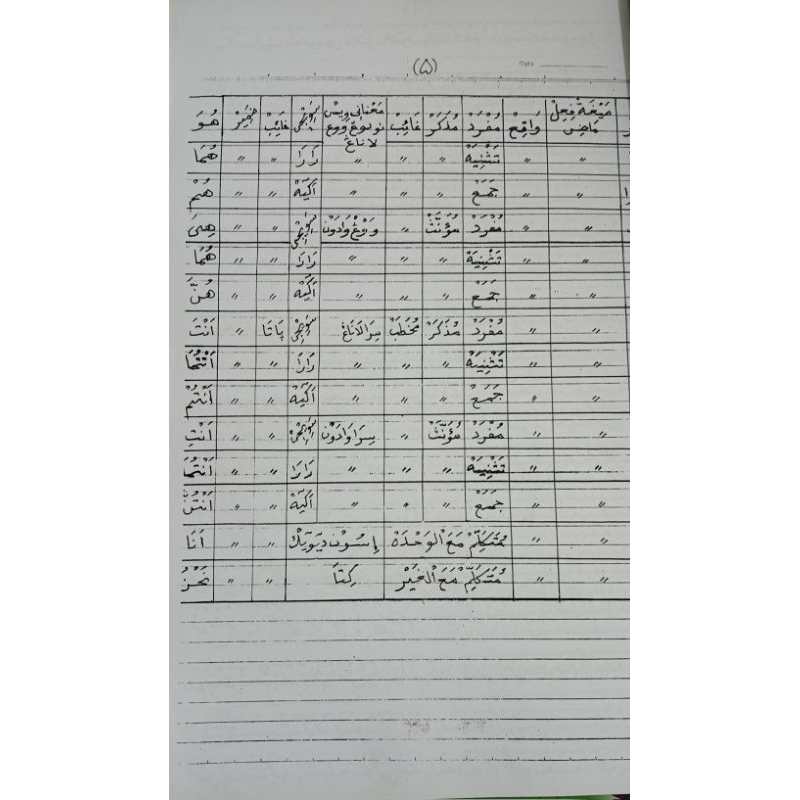 (۵)
Date
صِيْغَةْ فِعِلْ مَاضِى وَاقِعْ مُفْرَدْ مُذَكَّرْ غَائِبْ مَعْنَانَى وِيسْ نُولُوڠْ وَوڠْ لَانَاڠْ غَائِبْ ضَمِيْرْ هُوَ
〃 〃 تَثْنِيَهْ 〃 〃 〃 رَارَا 〃 〃 هُمَا
〃 〃 جَمَعْ 〃 〃 〃 اَكَيَهْ 〃 〃 هُمْ
〃 〃 مُفْرَدْ مُؤَنَّثْ 〃 وَوڠْ وَادَونْ 〃 〃 هِىَ
〃 〃 تَثْنِيَهْ 〃 〃 〃 رَارَا 〃 〃 هُمَا
〃 〃 جَمَعْ 〃 〃 〃 اَكَيَهْ 〃 〃 هُنَّ
〃 〃 مُفْرَدْ مُذَكَّرْ مُخَطَبْ سِرَا لَانَاڠْ سَوِجِى پَاتَا 〃 اَنْتَ
〃 〃 تَثْنِيَهْ 〃 〃 〃 رَارَا 〃 〃 اَنْتُمَا
〃 〃 جَمَعْ 〃 〃 〃 اَكَيَهْ 〃 〃 اَنْتُمْ
〃 〃 مُفْرَدْ مُؤَنَّثْ 〃 سِرَا وَادَونْ 〃 〃 اَنْتِ
〃 〃 تَثْنِيَهْ 〃 〃 〃 رَارَا 〃 〃 اَنْتُمَا
〃 〃 جَمَعْ 〃 〃 〃 اَكَيَهْ 〃 〃 اَنْتُنَّ
〃 〃 مُتَكَلِّمْ مَعَ الْوَحْدَهْ اِسُونْ دَيْوَيْكْ 〃 〃 اَنَا
〃 〃 مُتَكَلِّمْ مَعَ الْغَيْرْ كِتَا 〃 〃 نَحْنُ